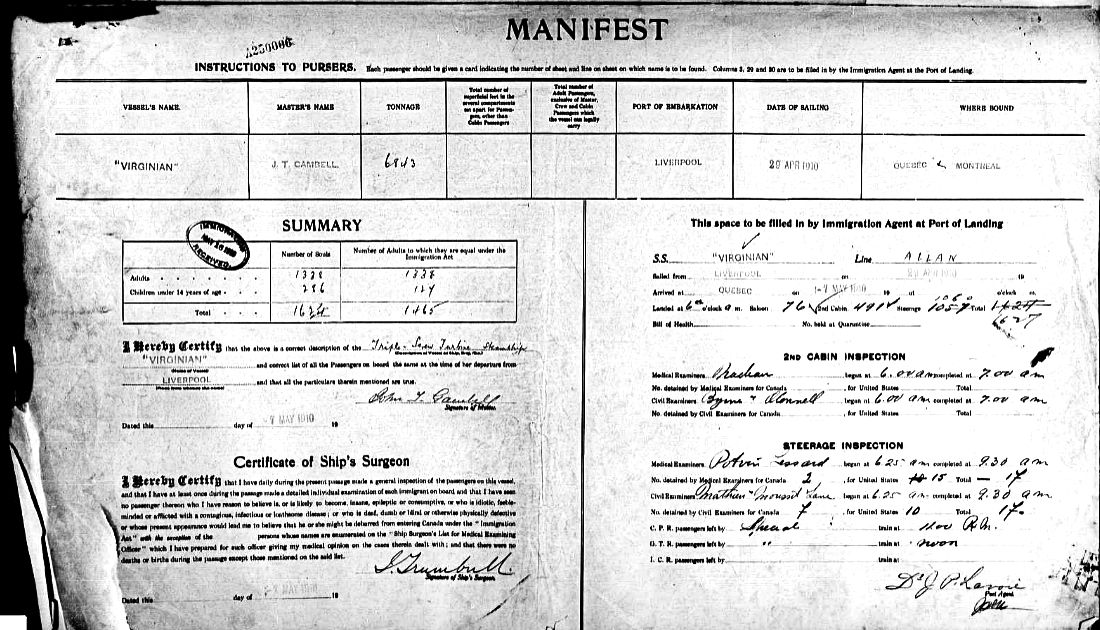 MANIFEST
A230086
INSTRUCTIONS TO PURSERS. Each passenger should be given a card indicating the number of sheet and line on sheet on which name is to be found. Columns 3, 29 and 30 are to be filled in by the Immigration Agent at the Port of Landing.
VESSEL'S NAME. MASTER'S NAME TONNAGE Total number of superficial feet in the several compartments set apart for Passengers, other than Cabin Passengers Total number of Adult Passengers, exclusive of Master, Crew and Cabin Passengers which the vessel can legally carry PORT OF EMBARKATION DATE OF SAILING WHERE BOUND
"VIRGINIAN" J. T. GAMBELL. 6843 LIVERPOOL 29 APR 1910 QUEBEC & MONTREAL
SUMMARY
IMMIGRATION
RECEIVED
Number of Souls Number of Adults to which they are equal under the Immigration Act
Adults 1338 1338
Children under 14 years of age 286 127
Total 1624 1465
I Hereby Certify that the above is a correct description of the Triple Screw Turbine Steamship
(Description of Vessel as Ship, Brig, &c.)
"VIRGINIAN" and correct list of all the Passengers on board the same at the time of her departure from
(Name of Vessel)
LIVERPOOL and that all the particulars therein mentioned are true.
John T. Gambell
Signature of Master.
Dated this day of 7 MAY 1910 19
Certificate of Ship's Surgeon
I Hereby Certify that I have daily during the present passage made a general inspection of the passengers on this vessel,
and that I have at least once during the passage made a detailed individual examination of each immigrant on board and that I have seen
no passenger thereon who I have reason to believe is, or is likely to become, insane, epileptic or consumptive, or who is idiotic, feeble-
minded or afflicted with a contagious, infectious or loathsome disease; or who is deaf, dumb or blind or otherwise physically defective
or whose present appearance would lead me to believe that he or she might be debarred from entering Canada under the "Immigration
Act" with the exception of the persons whose names are enumerated on the "Ship Surgeon's List for Medical Examining
Officer" which I have prepared for such officer giving my medical opinion on the cases therein dealt with; and that there were no
deaths or births during the passage except those mentioned on the said list.
J. Trumbull.
Signature of Ship's Surgeon.
Dated this day of 7 MAY 1910 19
This space to be filled in by Immigration Agent at Port of Landing
S.S. "VIRGINIAN" Line ALLAN
Sailed from LIVERPOOL on 29 APR 1910 19
Arrived at QUEBEC on 7 MAY 1910 19 at o'clock m.
Landed at 6 o'clock a m. Saloon 76 2nd Cabin 491 Steerage 1057 1060 Total 1627
Bill of Health No. held at Quarantine
2ND CABIN INSPECTION
Medical Examiners began at 6.00 am completed at 7.00 am
No. detained by Medical Examiners for Canada , for United States Total
Civil Examiners Byrne O'Connell began at 6.00 am completed at 7.00 am
No. detained by Civil Examiners for Canada , for United States Total
STEERAGE INSPECTION
Medical Examiners Potvin Lessard began at 6 25 am completed at 9.30 am
No. detained by Medical Examiners for Canada 2 , for United States 15 Total 17
Civil Examiners Matthew Lane began at 6.25 am completed at 9.30 am
No. detained by Civil Examiners for Canada 7 , for United States 10 Total 17
C. P. R. passengers left by Special train at 11.00
G. T. R. passengers left by " train at noon
I. C. R. passengers left by train at
Dr J. P. Lavoie
Port Agent